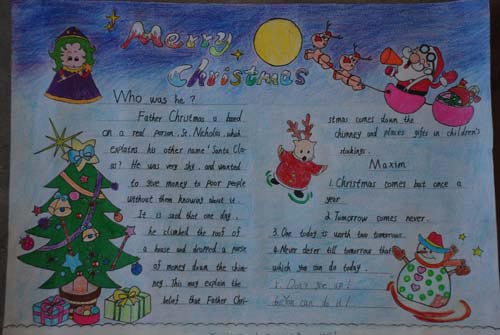 Merry
Christmas
Who was he?
Father Christmas a based
on a real person. St. Nicholas. which
explains his other name 'Santa Cla-
as? He was very shy. and wanted
to give money to poor people
without them knowing about it.
It is said that one day.
he climbed the roof of
a house and dropped a purse
of money down the chim-
ney. This may explain the
belief that Father Chri-
stmas comes down the
chimney and places gifts in children's
stockings.
Maxim
1. Christmas comes but once a
year.
2. Tomorrow comes never.
3. One today is worth two tomorrows.
4. Never defer till tomorrow that
which you can do today.
5. Don't give up!
6. You can do it!